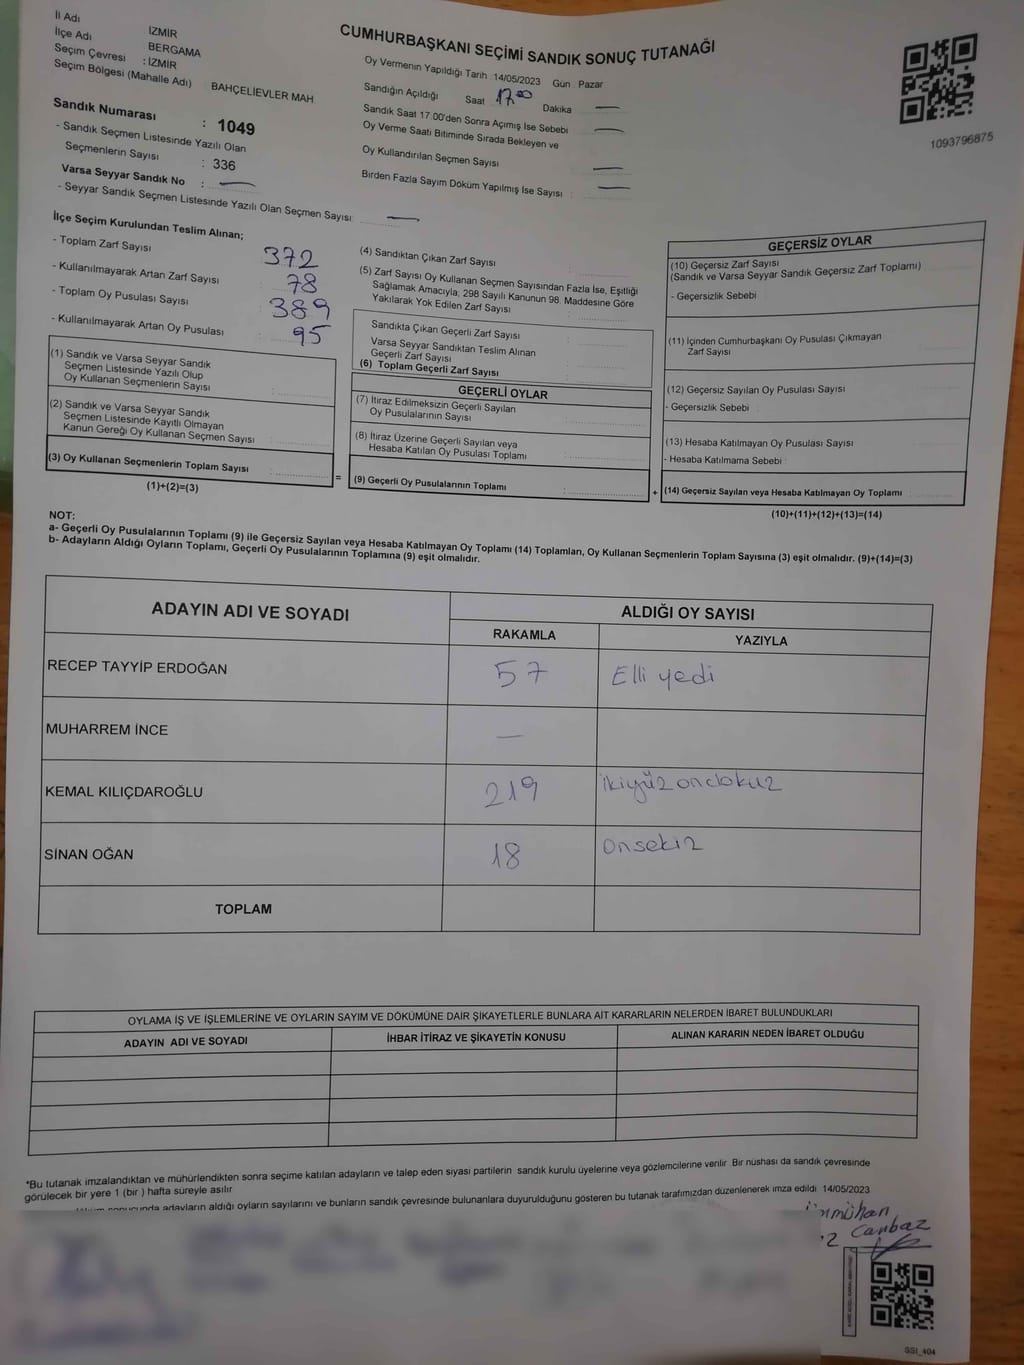 İl Adı
İZMİR
İlçe Adı
BERGAMA
Seçim Çevresi : İZMİR
Seçim Bölgesi (Mahalle Adı) BAHÇELİEVLER MAH.
Sandık Numarası : 1049
- Sandık Seçmen Listesinde Yazılı Olan
Seçmenlerin Sayısı : 336
Varsa Seyyar Sandık No : —
- Seyyar Sandık Seçmen Listesinde Yazılı Olan Seçmen Sayısı: —
CUMHURBAŞKANI SEÇİMİ SANDIK SONUÇ TUTANAĞI
Oy Vermenin Yapıldığı Tarih 14/05/2023 Gün Pazar
Sandığın Açıldığı Saat 17.00 Dakika —
Sandık Saat 17:00'den Sonra Açımış İse Sebebi —
Oy Verme Saati Bitiminde Sırada Bekleyen ve
Oy Kullandırılan Seçmen Sayısı —
Birden Fazla Sayım Döküm Yapılmış İse Sayısı : —
1093796875
İlçe Seçim Kurulundan Teslim Alınan;
- Toplam Zarf Sayısı 372
- Kullanılmayarak Artan Zarf Sayısı 78
- Toplam Oy Pusulası Sayısı 389
- Kullanılmayarak Artan Oy Pusulası : 95
(1) Sandık ve Varsa Seyyar Sandık
Seçmen Listesinde Yazılı Olup
Oy Kullanan Seçmenlerin Sayısı :
(2) Sandık ve Varsa Seyyar Sandık
Seçmen Listesinde Kayıtlı Olmayan
Kanun Gereği Oy Kullanan Seçmen Sayısı :
(3) Oy Kullanan Seçmenlerin Toplam Sayısı :
(1)+(2)=(3)
(4) Sandıktan Çıkan Zarf Sayısı :
(5) Zarf Sayısı Oy Kullanan Seçmen Sayısından Fazla İse, Eşitliği
Sağlamak Amacıyla, 298 Sayılı Kanunun 98. Maddesine Göre
Yakılarak Yok Edilen Zarf Sayısı :
Sandıkta Çıkan Geçerli Zarf Sayısı :
Varsa Seyyar Sandıktan Teslim Alınan
Geçerli Zarf Sayısı :
(6) Toplam Geçerli Zarf Sayısı :
GEÇERLİ OYLAR
(7) İtiraz Edilmeksizin Geçerli Sayılan
Oy Pusulalarının Sayısı :
(8) İtiraz Üzerine Geçerli Sayılan veya
Hesaba Katılan Oy Pusulası Toplamı :
= (9) Geçerli Oy Pusulalarının Toplamı :
GEÇERSİZ OYLAR
(10) Geçersiz Zarf Sayısı
(Sandık ve Varsa Seyyar Sandık Geçersiz Zarf Toplamı)
- Geçersizlik Sebebi
(11) İçinden Cumhurbaşkanı Oy Pusulası Çıkmayan
Zarf Sayısı
(12) Geçersiz Sayılan Oy Pusulası Sayısı
- Geçersizlik Sebebi
(13) Hesaba Katılmayan Oy Pusulası Sayısı
- Hesaba Katılmama Sebebi :
+ (14) Geçersiz Sayılan veya Hesaba Katılmayan Oy Toplamı :
(10)+(11)+(12)+(13)=(14)
NOT:
a- Geçerli Oy Pusulalarının Toplamı (9) ile Geçersiz Sayılan veya Hesaba Katılmayan Oy Toplamı (14) Toplamları, Oy Kullanan Seçmenlerin Toplam Sayısına (3) eşit olmalıdır. (9)+(14)=(3)
b- Adayların Aldığı Oyların Toplamı, Geçerli Oy Pusulalarının Toplamına (9) eşit olmalıdır.
ADAYIN ADI VE SOYADI
ALDIĞI OY SAYISI
RAKAMLA YAZIYLA
RECEP TAYYİP ERDOĞAN 57 Elli yedi
MUHARREM İNCE —
KEMAL KILIÇDAROĞLU 219 ikiyüz ondokuz
SİNAN OĞAN 18 onsekiz
TOPLAM
OYLAMA İŞ VE İŞLEMLERİNE VE OYLARIN SAYIM VE DÖKÜMÜNE DAİR ŞİKAYETLERLE BUNLARA AİT KARARLARIN NELERDEN İBARET BULUNDUKLARI
ADAYIN ADI VE SOYADI İHBAR İTİRAZ VE ŞİKAYETİN KONUSU ALINAN KARARIN NEDEN İBARET OLDUĞU
*Bu tutanak imzalandıktan ve mühürlendikten sonra seçime katılan adayların ve talep eden siyasi partilerin sandık kurulu üyelerine veya gözlemcilerine verilir Bir nüshası da sandık çevresinde
görülecek bir yere 1 (bir ) hafta süreyle asılır
adayların aldığı oyların sayılarını ve bunların sandık çevresinde bulunanlara duyurulduğunu gösteren bu tutanak tarafımızdan düzenlenerek imza edildi 14/05/2023
Canbaz
SSI_404